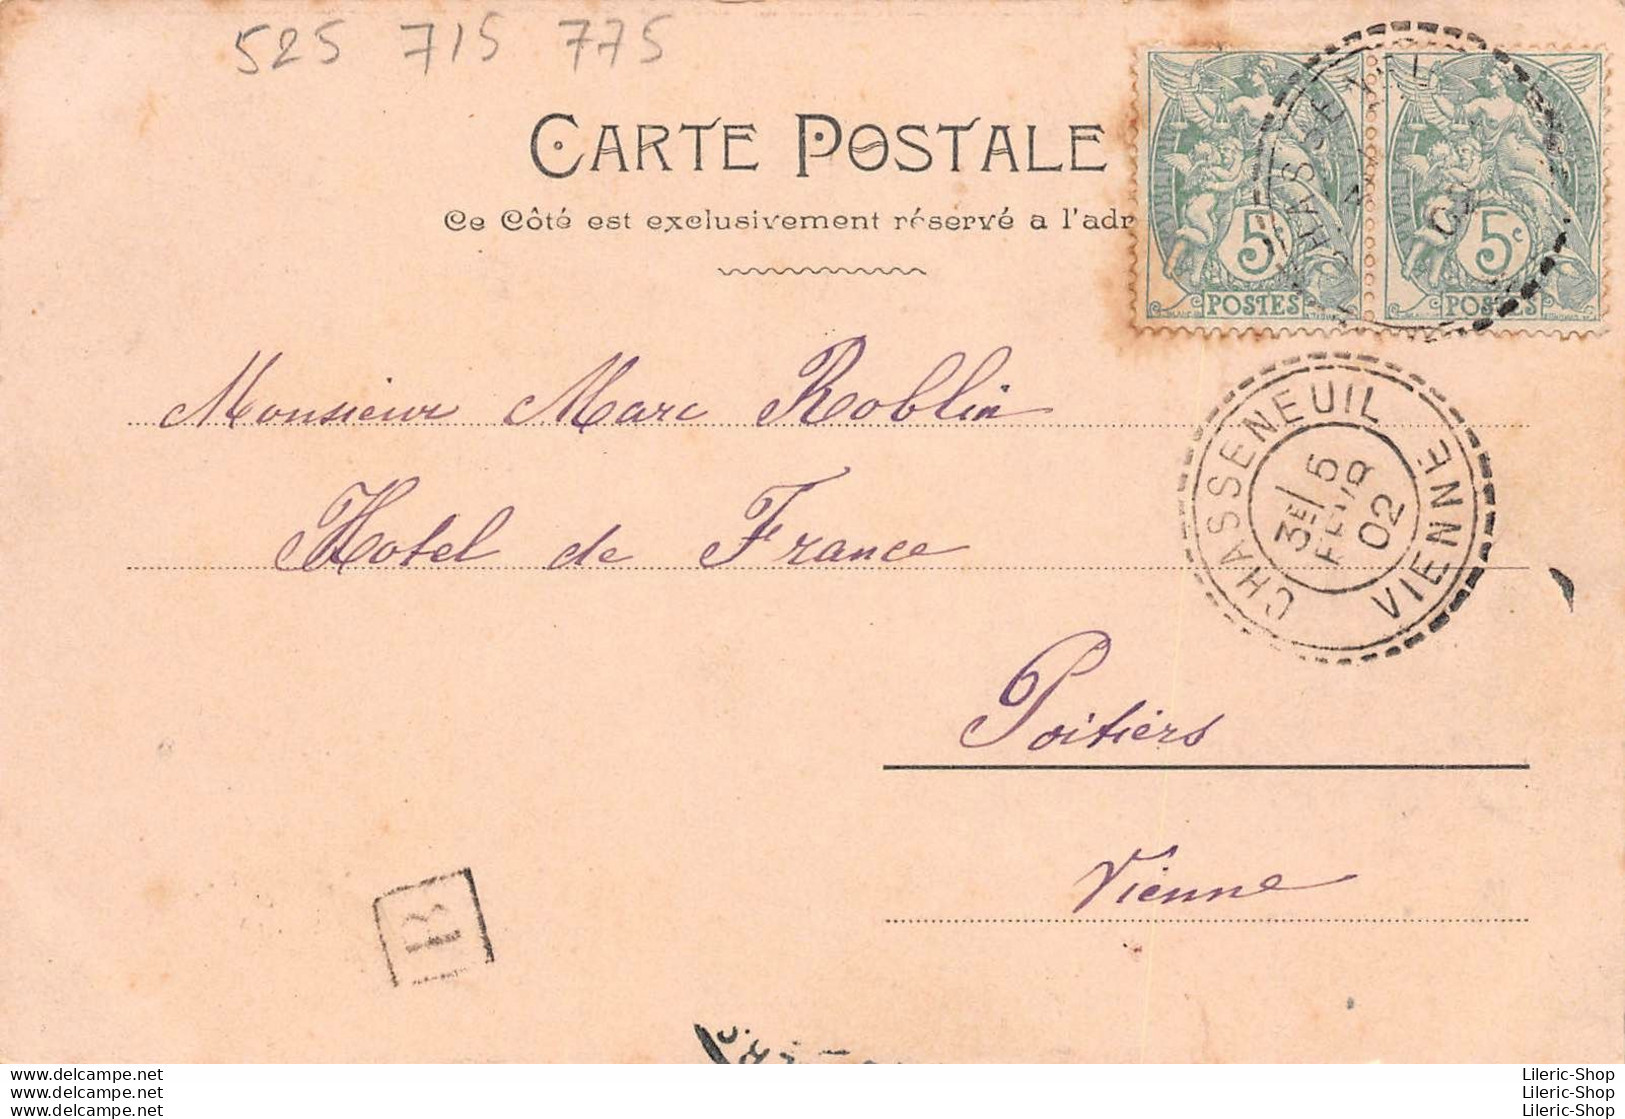 525 715 775
CARTE POSTALE
Ce Côté est exclusivement réservé a l'adr
5c POSTES
5c POSTES
Monsieur Marc Roblin
CHASSENEUIL VIENNE
3E/ 5
FEVR
02
Hotel de France
Poitiers
Vienne
R
www.delcampe.net
www.delcampe.net
www.delcampe.net
Lileric-Shop
Lileric-Shop
Lileric-Shop